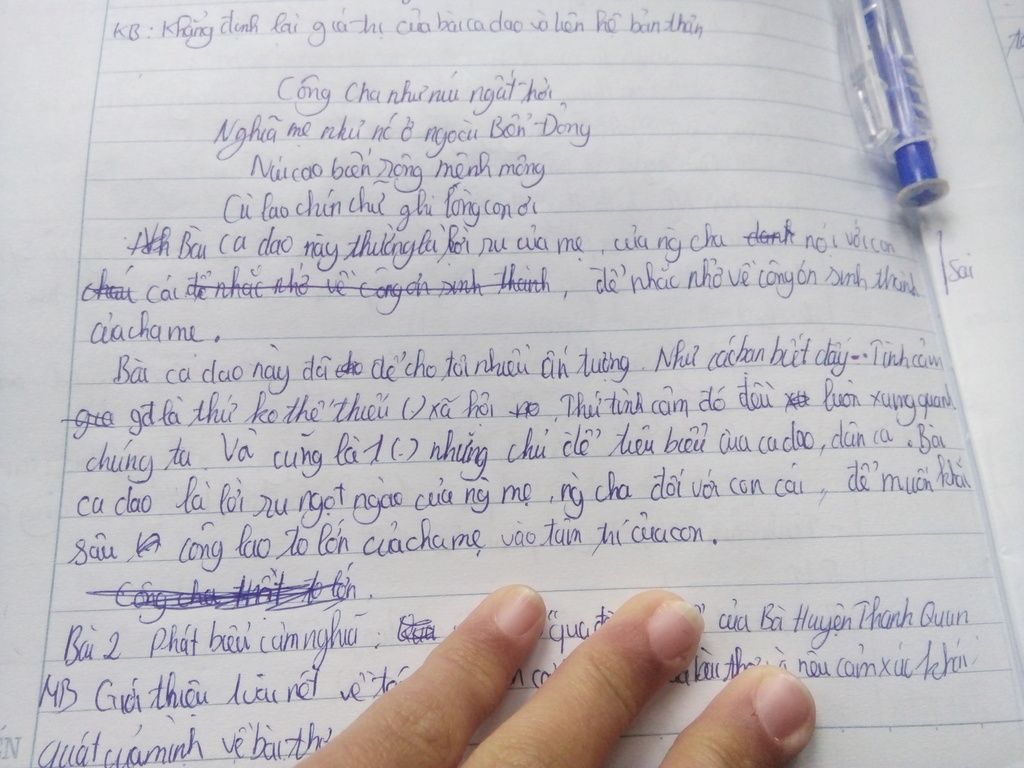 KB: Khẳng định lại giá trị của bài ca dao và liên hệ bản thân
Công cha như núi ngất trời
Nghĩa mẹ như nc ở ngoài Biển Đông
Núi cao biển rộng mênh mông
Cù lao chín chữ ghi lòng con ơi
Bài ca dao này thường là lời ru của mẹ, của ng cha danh nói với con
cái để nhắc nhở về công ơn sinh thành, để nhắc nhở về công ơn sinh thành
của cha mẹ.
Sai
Bài ca dao này đã cho để cho tôi nhiều ấn tượng. Như các bạn biết đấy... Tình cảm
gđ là thứ ko thể thiếu (.) xã hội. Thứ tình cảm đó đều luôn xung quanh
chúng ta. Và cũng là 1 (.) những chủ đề tiêu biểu của ca dao, dân ca. Bài
ca dao là lời ru ngọt ngào của ng mẹ, ng cha đối với con cái, để muốn khắc
sâu công lao to lớn của cha mẹ vào tâm trí của con.
Công cha thật to lớn.
Bài 2 Phát biểu cảm nghĩ: qua đ của Bà Huyện Thanh Quan
MB Giới thiệu vài nét về tác bài thơ nêu cảm xúc khái
quát của mình về bài thơ